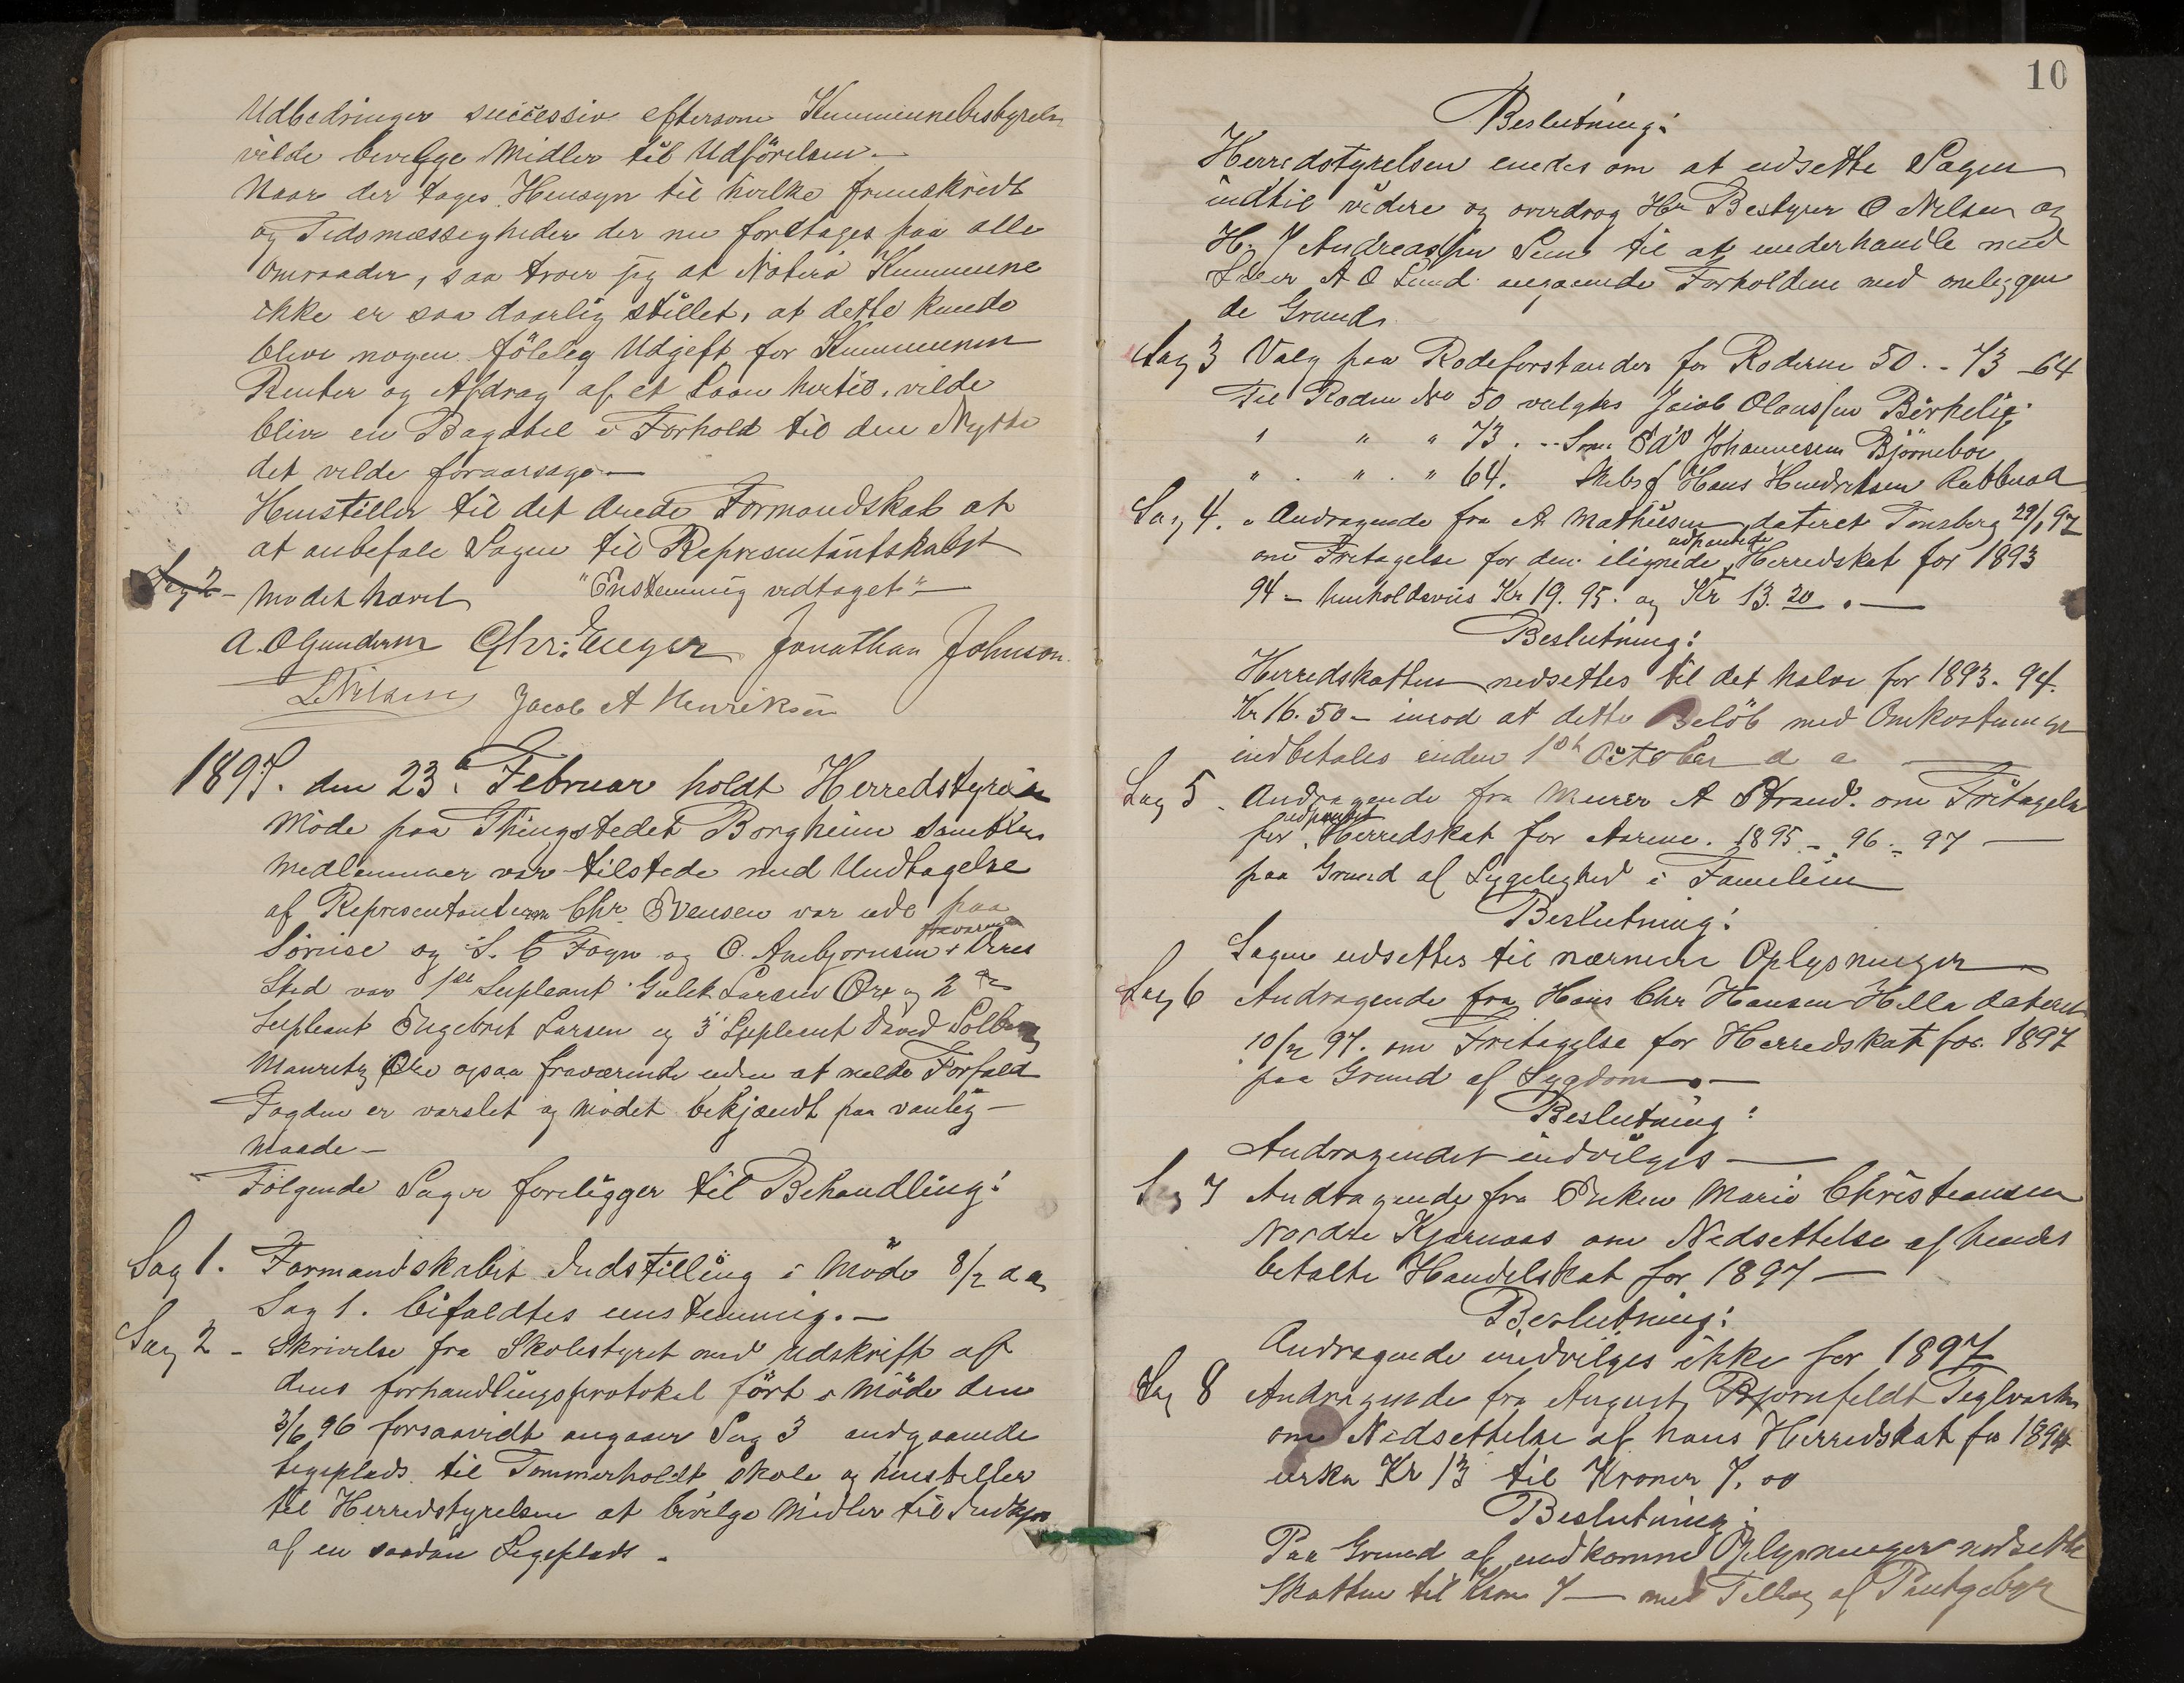 Udbedringer successiv eftersom Kummunebestyrelsen
vilde bevilge Midler til Udförelsen.—
Naar der tages Hensyn til hvilke fremskridt
og Tidsmæssigheder der nu foretages paa alle
Omraader, saa troer jeg at Nöterö Kummune
ikke er saa daarlig stillet, at dette kunde
blive nogen fölelig Udgift for Kummunen
Renter og Afdrag af et Laan hertil, vilde
blive en Bagatel i Forhold til den Nytte
det vilde foraarsage—
Henstiller til det ærede Formandskab at
at anbefale Sagen til Representantskabet
Sag 2 - Mödet hævet "Enstemmig vedtaget"—
A. O Gundersen Chr: Unger Jonathan Johnson
L Nilsen Jacob A Henriksen
1897. den 23de Februar holdt Herredstyret
Möde paa Thingstedet Borgheim samtlige
Medlemmer var tilstede med Undtagelse
af Representanterne Chr Svensen var ude paa
fraværende
Söreise og S. C Fogn og O. Anbjornsen i deres
Sted var 1ste Supleant Gulek Larsen Ore og 2den
Supleant Ingebret Larsen og 3 Supleent David Solberg
Mauretz Ore ogsaa fraværende uden at melde Forfald
Fogden er varslet og Mödet bekjendt paa vanlig—
Maade—
Fölgende Sager foreligger til Behandling:
Sag 1. Formandskabet Indstilling i Möde 8/2 d a
Sag 1. bifaldtes enstemmig.—
Sag 2 - Skrivelse fra Skolestyret med Udskrift af
dens forhandlingsprotokol fört i Möde den
3/6 96 forsaavidt angaar Sag 3 angaaende
Legeplads til Tommerholdt skole og henstiller
til Herredstyrelsen at bevilge Midler til Indkjøb
af en saadan Legeplads.
10
Beslutning:
Herredstyrelsen enedes om at udsette Sagen
indtil videre og overdrog Hr Bestyrer O Nilsen og
H. J Andreassen Sem til at underhandle med
A O Lund angaaende Forholdene med omliggen
de Grund.
Sag 3 Valg paa Rodeforstander for Roderne 50.-73-64
Til Roden No 50 valgtes Jacob Olaussen Birkelig
" " " 73. Johannesen Björneboe
" " " 64. Skibsf Hans Hendriksen
Sag 4. Andragende fra A Mathisen dateret Tonsberg 29/1 97
udpantede
om Fritagelse for den ilignede Herredskat for 1893
94 - henholdsvis Kr 19.95. og Kr 13.20.—
Beslutning:
Herredskatten nedsettes til det halve for 1893. 94.
Kr 16.50— imod at dette Belöb med Omkostninger
indbetales inden 1ste October d a
Sag 5. Andragende fra Murer A Strand. om Fritagelse
udpantet
for Herredskat for Aarene. 1895 - 96 - 97 —
paa Grund af Sygelighed i Familien
Beslutning:
Sagen udsettes til nærmere Oplysninger
Sag 6 Andragende fra Hans Chr Hansen Hella dateret
10/2 97. om Fritagelse for Herredskat for 1897
paa Grund af Sygdom.—
Beslutning:
Andragendet indvilges—
Sag 7 Andragende fra Enken Marie Christeansen
Nordre Kjærnaas om Nedsettelse af hendes
betalte Handelskat for 1897—
Beslutning:
Andragende indvilges ikke for 1897
Sag 8 Andragende fra August Bjornfeldt Teglværken
om Nedsettelse af hans Herredskat for 1894
cirka Kr 13 til Kroner 7.00
Beslutning:
Paa Grund af indkomne Oplysninger nedsettes
Skatten til Kron 7— med Tillæg af Pantgebyr